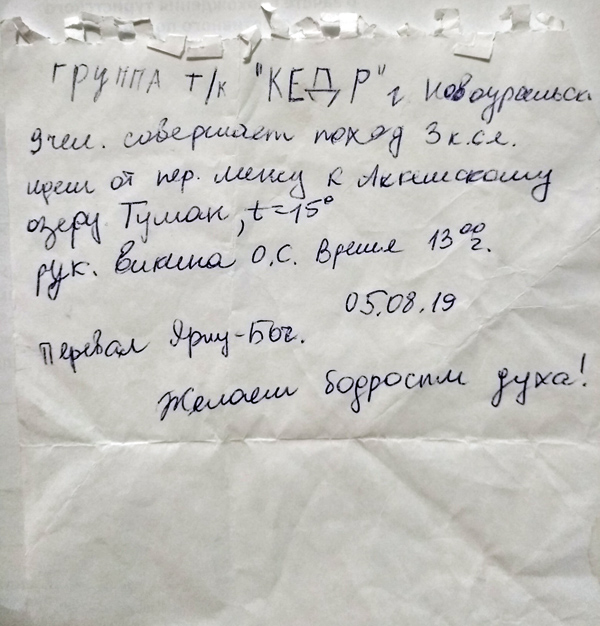 группа т/к "КЕДР" г Новоуральск
9 чел. совершает поход 3 к.сл.
идем от пер. менсу к Аккемскому
озеру. Туман, t=15°
рук. Викина О.С. Время 13⁰⁰ч.
05.08.19
Перевал Ярлу-Боч.
Желаем бодрости духа!